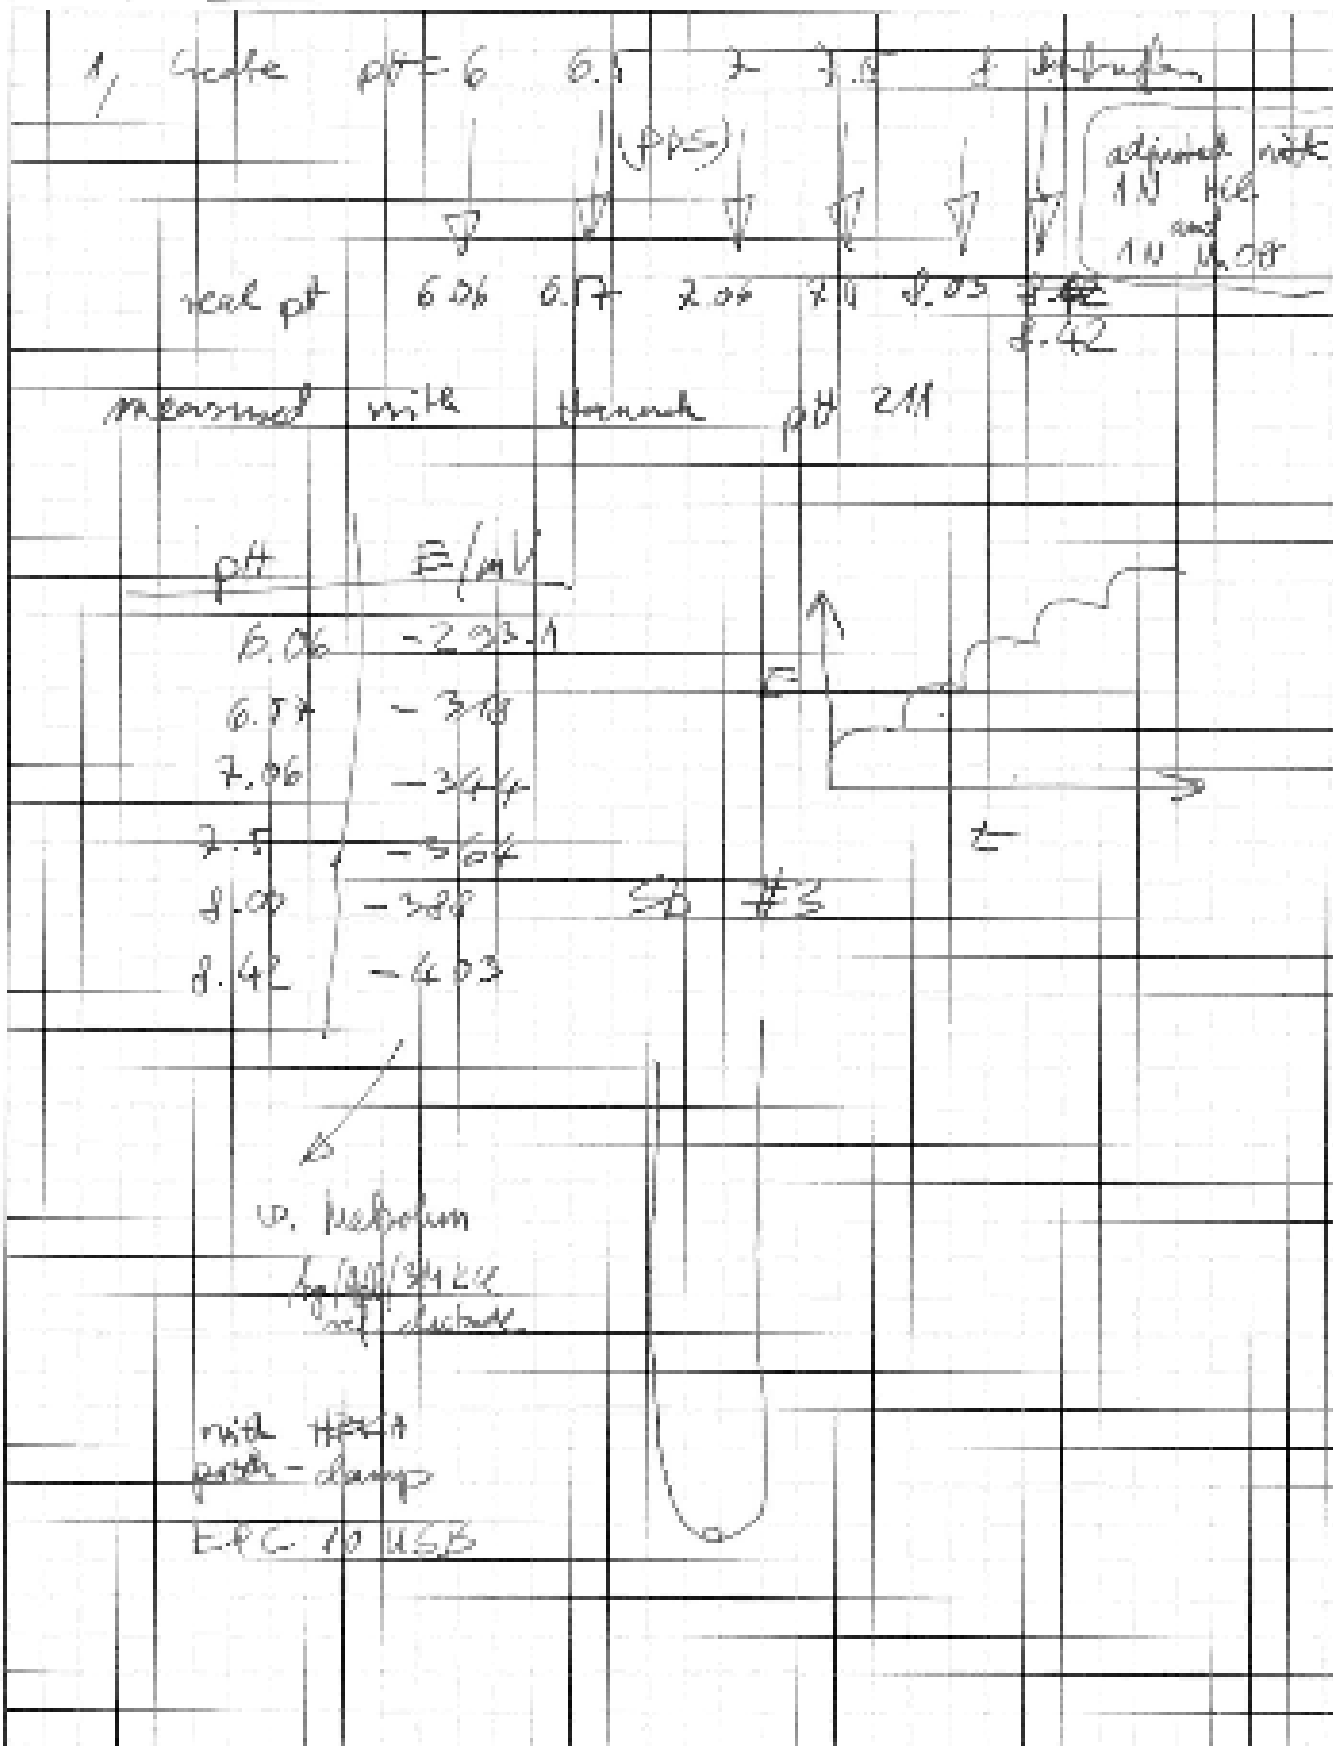 1, Create pH = 6 6.5 7 7.5 8 8.5 buffers
(PBS)
adjusted with
1N HCl
and
1N NaOH
real pH 6.06 6.57 7.06 7.5 8.03
8.42
measured with Hannah pH 211
pH E/mV
6.06 -293.1
6.57 -318
7.06 -344
7.5 -364
8.03 -388
8.42 -403
E
t
Sb #3
vs. Metrohm
Ag/AgCl/3M KCl
ref. electrode
with HEKA
patch-clamp
EPC 10 USB